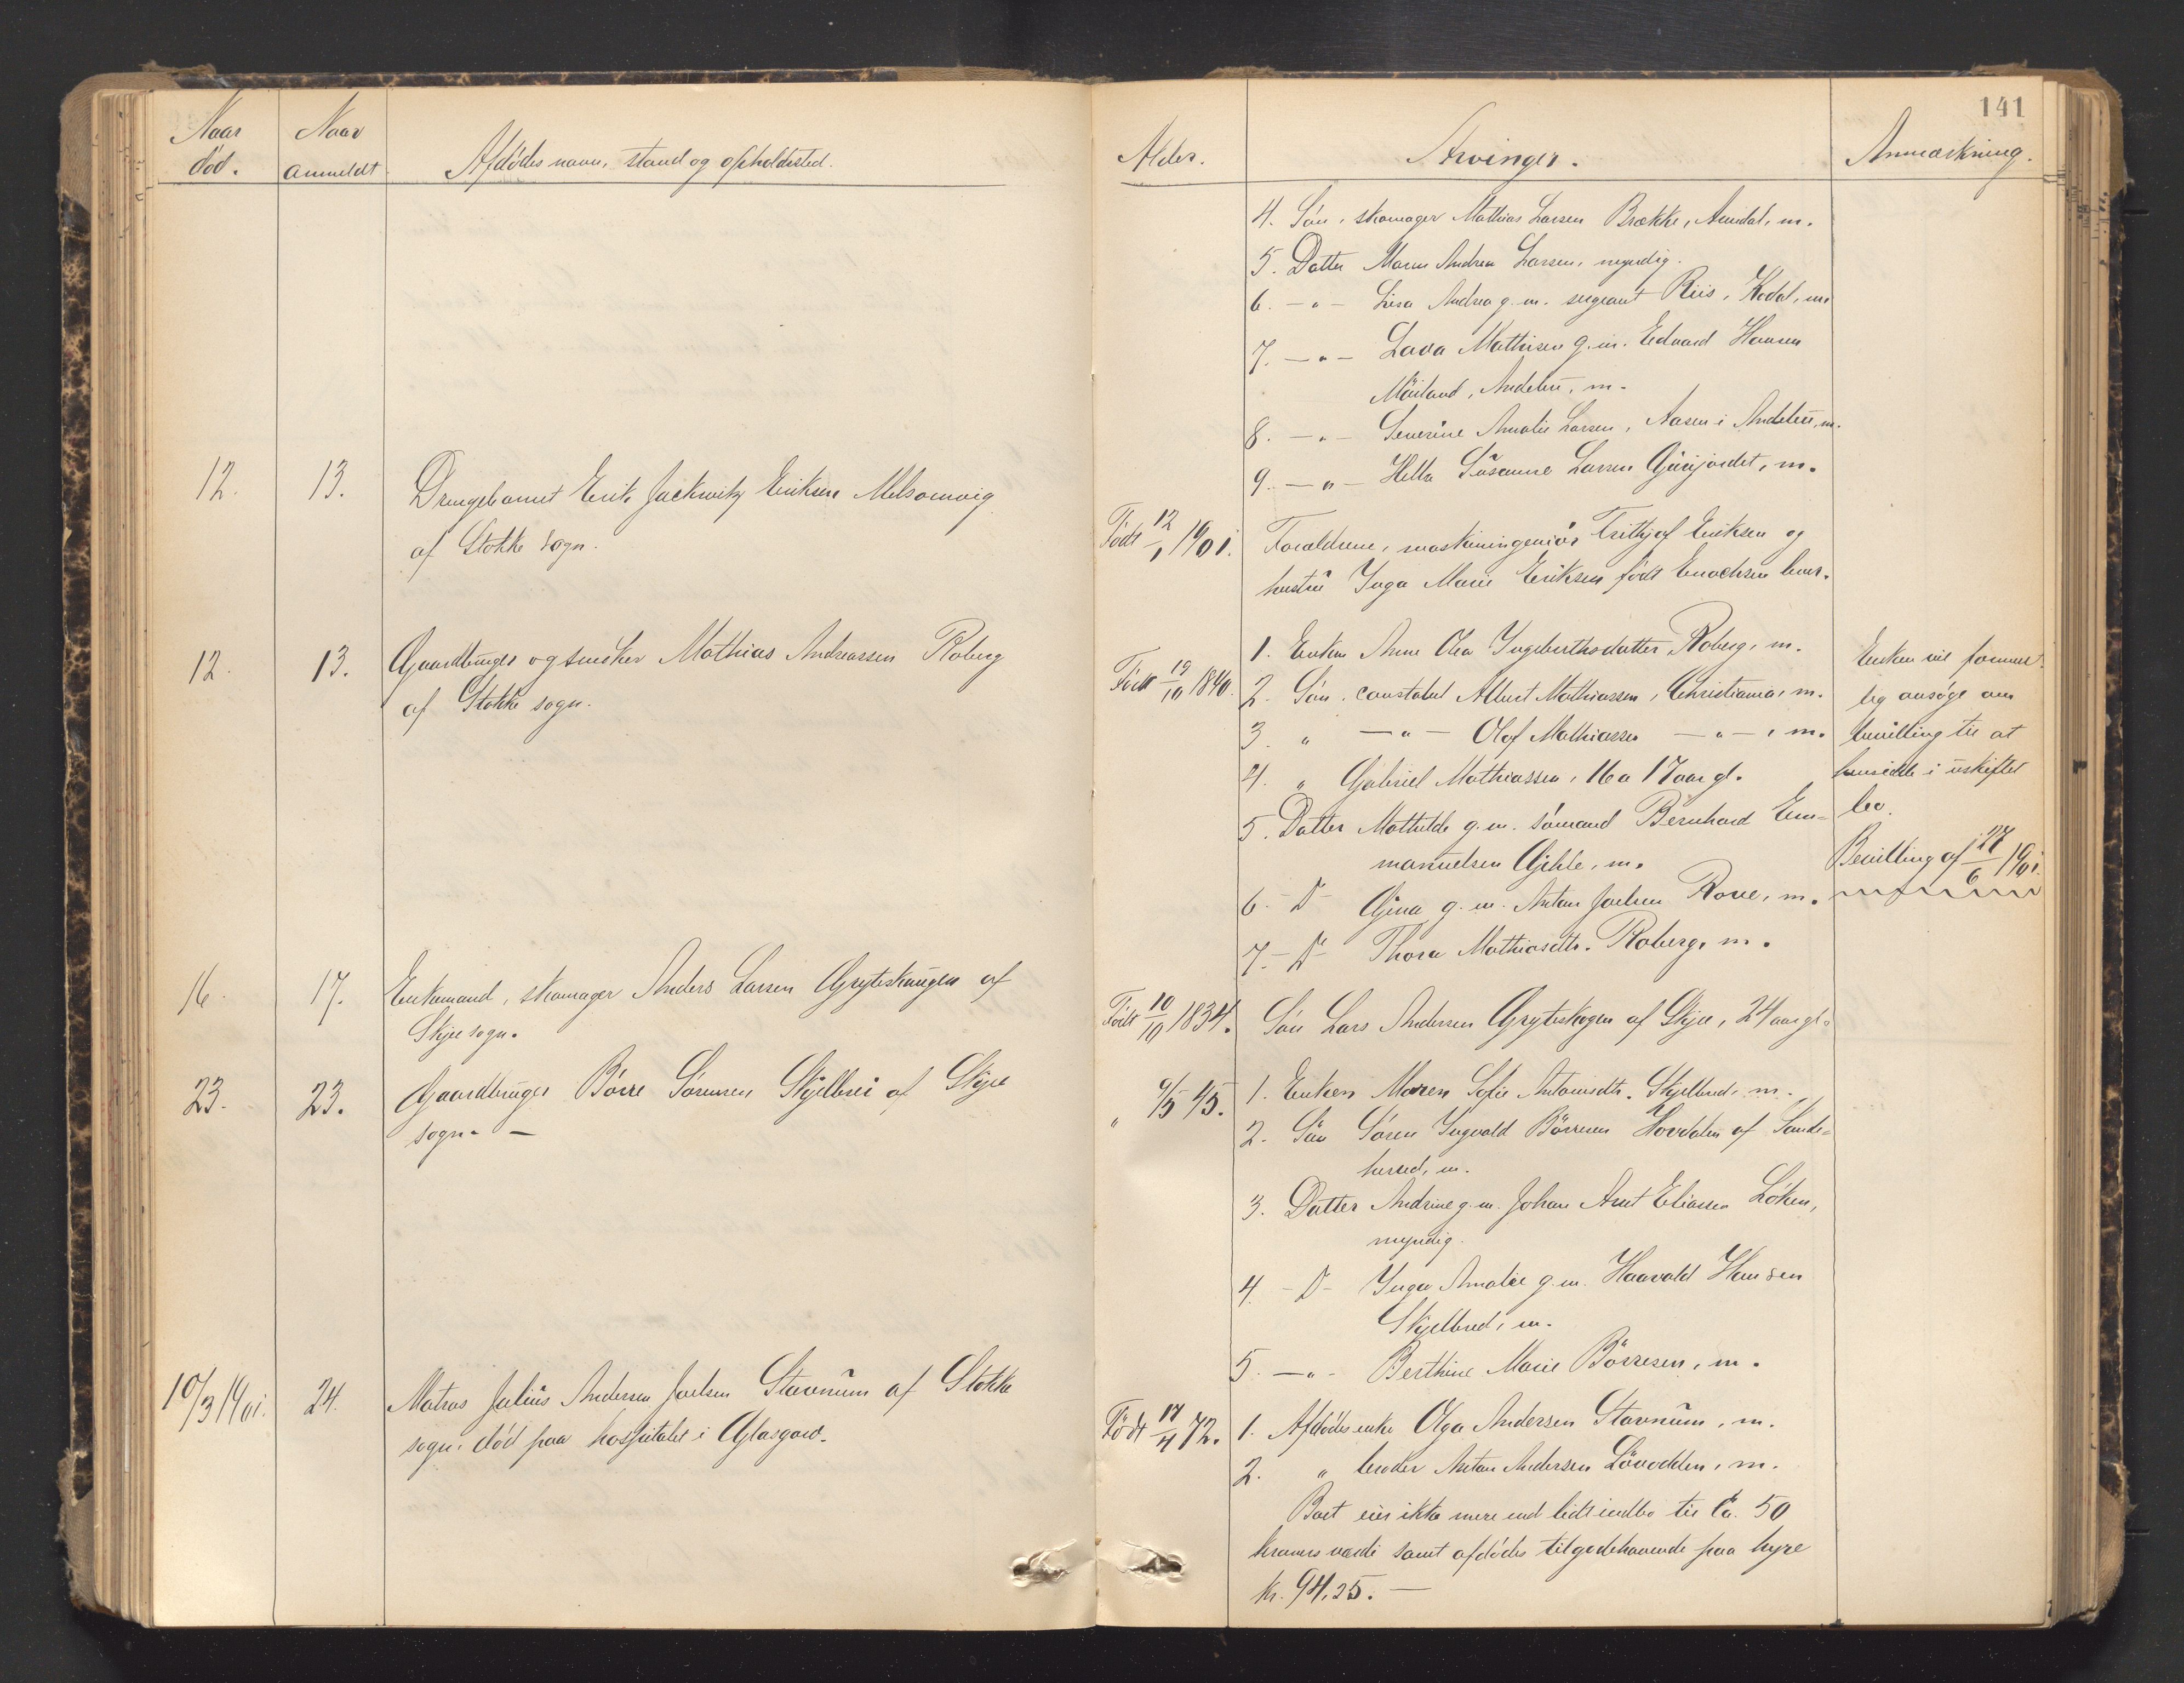 141
Naar død.
Naar anmeldt.
Afdødes navn, stand og opholdssted.
Alder.
Arvinger.
Anmærkning.
4. Søn, skomager Mathias Larsen Brække, Arendal, m.
5. Datter Maren Andrea Larsen, myndig.
6. –„– Lisa Andrea g. m. sergeant Riis, Kodal, m.
7. –„– Lava Mathisen g. m. Edvard Hansen
Møiland, Andebu, m.
8. –„– Severine Amalie Larsen, Aasen i Andebu, m.
9. –„– Hella Susanne Larsen Gjerjordet, m.
12. 13. Drengebarnet Erik Jackwitz Eriksen Melsomvig
af Stokke sogn.
Født 12/1 1901. Forældrene, maskiningeniør Frithjof Eriksen og
hustru Inga Marie Eriksen født Enochsen lever.
12. 13. Gaardbruger og snedker Mathias Andreassen Roberg
af Stokke sogn.
Født 19/10 1840. 1. Enken Anne Olea Ingebrethsdatter Roberg, m.
2. Søn, constabel Albert Mathiassen, Christiania, m.
3. „ –„– Olof Mathiassen –„–, m.
4. „ Gabriel Mathiassen, 16 a 17 aar gl.
5. Datter Mathilde g. m. sømand Bernhard Em-
manuelsen Gjehle, m.
6. – D – Gina g. m. Anton Joelsen Rove, m.
7. – D – Thora Mathiasdtr. Roberg, m.
Enken vil forment-
lig ansøge om
bevilling til at
hensidde i uskiftet
bo.
Bevilling af 27/6 1901.
16. 17. Enkemand, skomager Anders Larsen Gryteskaugen af
Skjee sogn.
Født 10/10 1834. Søn Lars Andersen Gryteskogen af Skjee, 24 aar gl.
23. 23. Gaardbruger Børre Sørensen Skjelbrei af Skjee
sogn. –
„ 9/5 45. 1. Enken Maren Sofie Antonisdtr. Skjelbred, m.
2. Søn Søren Ingvald Børresen Hovdalen af Sande-
herred, m.
3. Datter Andrine g. m. Johan Arnt Eliassen Løken,
myndig.
4. – D – Inga Amalie g. m. Haavald Hansen
Skjelbred, m.
5. –„– Berthine Marie Børresen, m.
10/3 1901. 24. Matros Julius Andersen Joelsen Stavnum af Stokke
sogn, død paa hospitalet i Glasgow.
Født 17/4 72. 1. Afdødes enke Olga Andersen Stavnum, m.
2. „ broder Anton Andersen Løvodden, m.
Boet eier ikke mere end lidt indbo til Ca. 50
kroners værdi samt afdødes tilgodehavende paa hyre
kr. 94,25. –